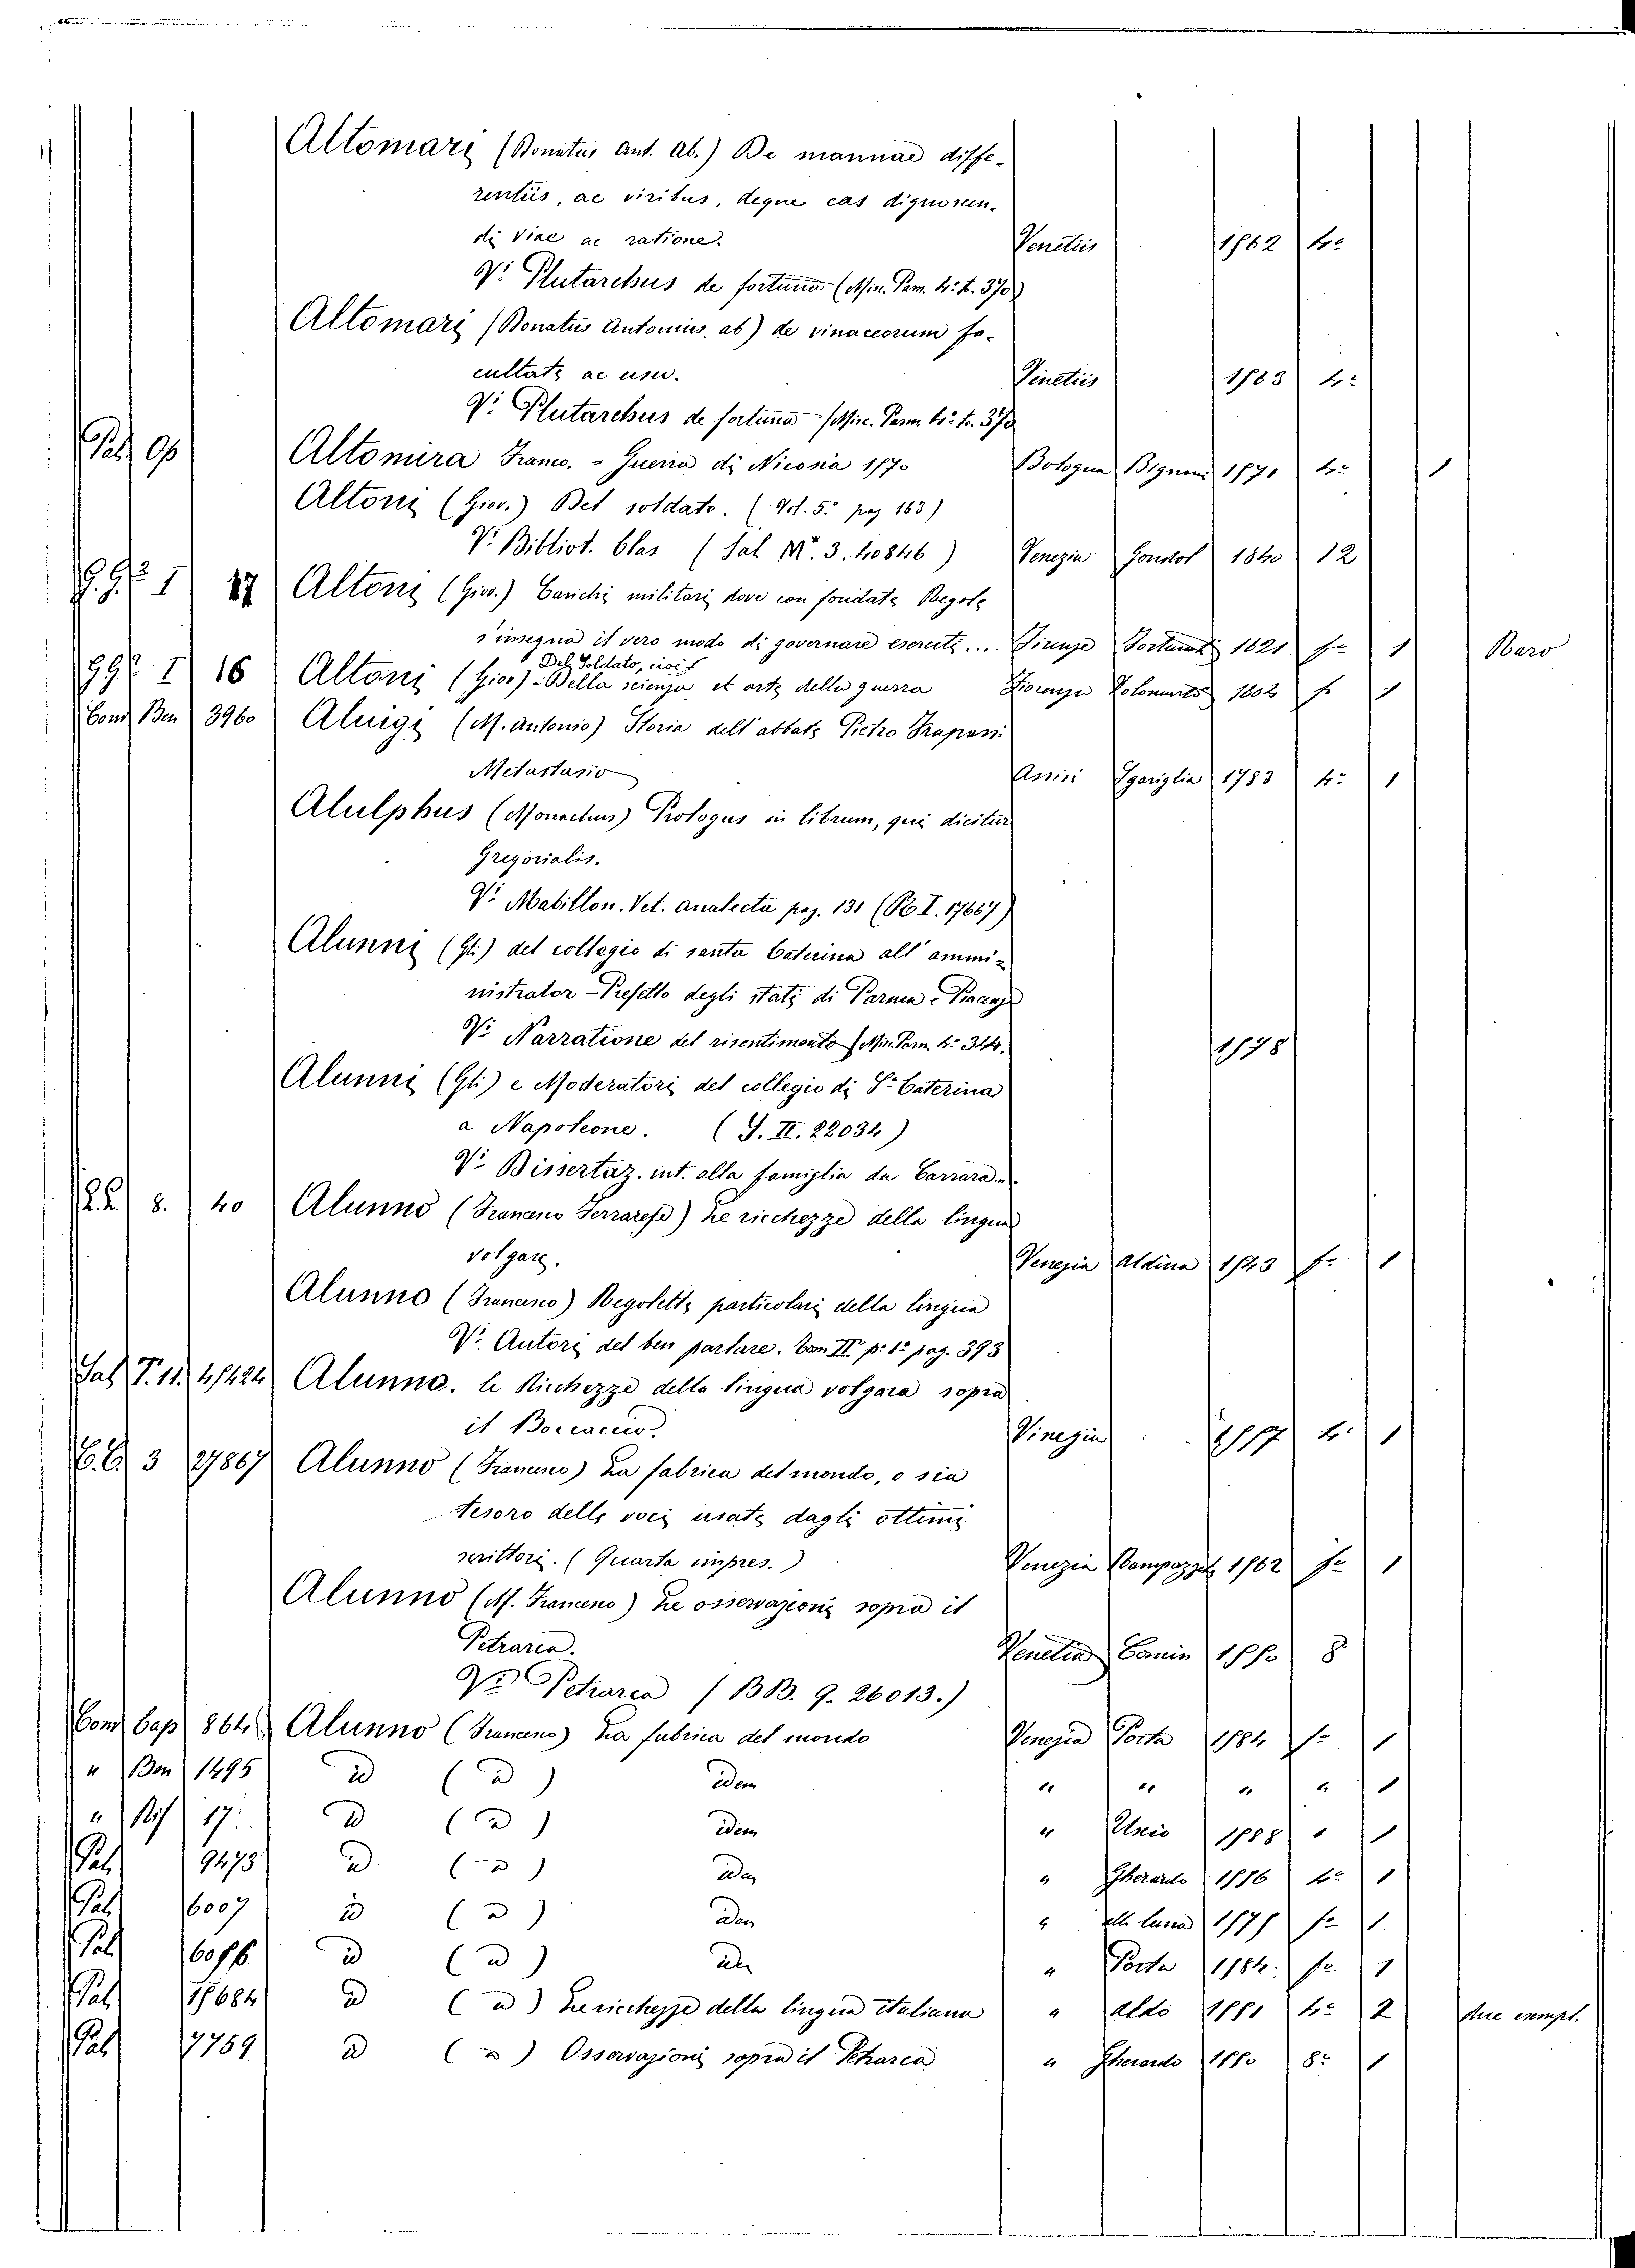 Altomari (Donatus Ant. ab.) De mannae diffe-
rentiis, ac viribus, deque eas dignoscen-
di viae ac ratione. Venetiis 1562 4º
Vi Plutarchus de fortuna (Misc. Parm. 4º t. 370)
Altomari (Donatus Antonius ab) de vinaceorum fa-
cultate ac usu. Venetiis 1563 4º
Vi Plutarchus de fortuna (Misc. Parm. 4º t. 370
Pal Altomira Franco. - Guerra di Nicosia 1570 Bologna Bignani 1571 4º 1
Altoni (Giov.) Del soldato. (Vol. 5º pag. 163)
Vi Bibliot. Clas (Sal Mr. 3. 40846) Venezia Gondol 1840 12
I 17 Altoni (Giov.) Carichi militari dove con fondate Regole
s'insegna il vero modo di governare eserciti.... Firenze 1621 fº 1 Raro
Del Soldato, cioè
I 16 Altoni (Giov) - Della scienza et arte della guerra Fiorenza fº 1
Cond Ben 3960 Aluigi (M. Antonio) Storia dell'abbate Pietro Trapassi
Metastasio Assisi Sgariglia 1783 4º 1
Alulphus (Monachus) Prologus in librum, qui dicitur
Gregorialis.
Vi Mabillon. Vet. analecta pag. 131 (I. 17667)
Alunni (Gli) del collegio di santa Caterina all'ammi-
nistrator-Prefetto degli stati di Parma e Piacenza
Vi Narratione del risentimento (Misc. Parm. 4º 344. 1578
Alunni (Gli) e Moderatori del collegio di Sª Caterina
a Napoleone. (J. II. 22034)
Vi Dissertaz. int. alla famiglia da Carrara.
8. 40 Alunno (Francesco Ferrarese) Le ricchezze della lingua
volgare. Venezia Aldina 1543 fº 1
Alunno (Francesco) Regolette particolari della lingua
Vi Autori del ben parlare. Tom IIº p. 1ª pag. 393
Sal T. 11. 41424 Alunno. le Ricchezze della lingua volgara sopra
il Boccaccio. Vinegia 1557 4º 1
3 27867 Alunno (Francesco) La fabrica del mondo, o sia
tesoro delle voci usate dagli ottimi
scrittori. (Quarta impres.) Venezia Rampazzet 1562 fº 1
Alunno (M. Francesco) Le osservazioni sopra il
Petrarca. Venetia Comin 1550 8
Vi Petrarca (BB. 9. 26013.)
Cond Cap 864 Alunno (Francesco) La fabrica del mondo Venezia Porta 1584 fº 1
" Ben 1495 id (id) idem " " " " 1
" 17 id (id) idem " 1588 " 1
Pal 9473 id (id) idem " Gherardo 1556 4º 1
Pal 6007 id (id) idem " alla luna 1575 fº 1.
Pal 6056 id (id) idem " Porta 1584. fº 1
Pal 15684 id (id) Le ricchezze della lingua italiana " Aldo 1551 4º 2 due exempl.
Pal 7759 id (id) Osservazioni sopra il Petrarca " Gherardo 1550 8º 1